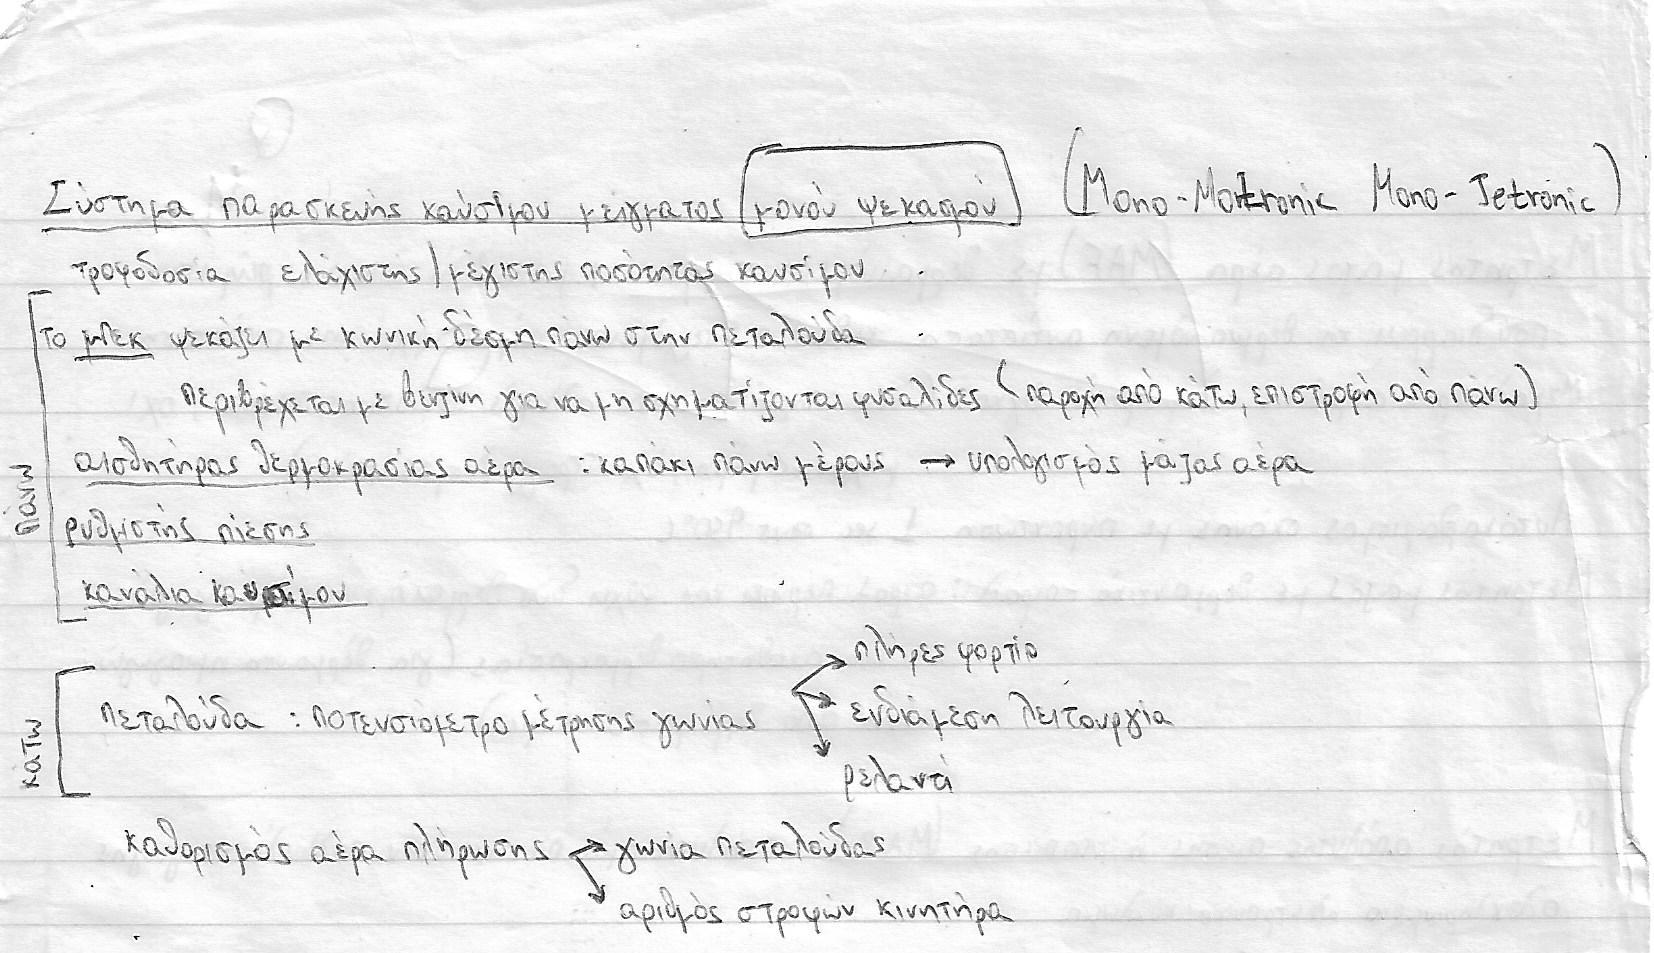 Σύστημα παρασκευής καύσιμου μείγματος μονού ψεκασμού (Mono-Motronic Mono-Jetronic)
τροφοδοσία ελάχιστης/μέγιστης ποσότητας καυσίμου
πάνω
το μπεκ ψεκάζει με κωνική δέσμη πάνω στην πεταλούδα
περιβρέχεται με βενζίνη για να μη σχηματίζονται φυσαλίδες (παροχή από κάτω, επιστροφή από πάνω)
αισθητήρας θερμοκρασίας αέρα : καπάκι πάνω μέρους → υπολογισμός μάζας αέρα
ρυθμιστής πίεσης
κανάλια καυσίμου
κάτω
πεταλούδα : ποτενσιόμετρο μέτρησης γωνίας → πλήρες φορτίο
→ ενδιάμεση λειτουργία
→ ρελαντί
καθορισμός αέρα πλήρωσης → γωνία πεταλούδας
→ αριθμός στροφών κινητήρα